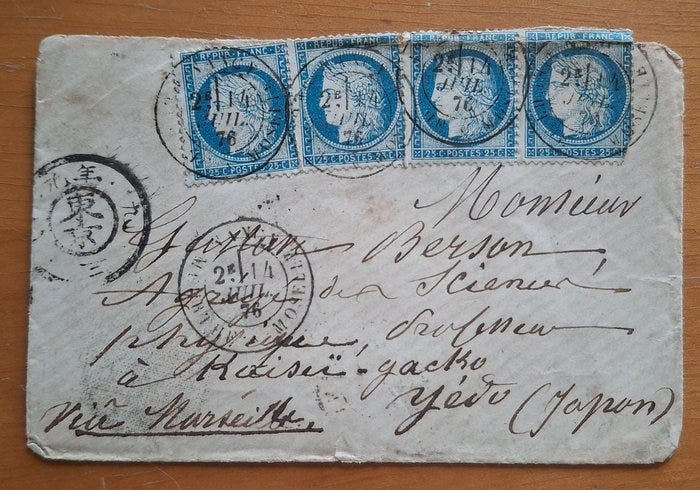 REPUB·FRANC
REPUB·FRANC
REPUB·FRANC
REPUB·FRANC
2E 14
JUIL
76
2E 14
JUIL
76
2E 14
JUIL
76
2E 14
JUIL
76
25 C·POSTES·25 C
25 C·POSTES·25 C
25 C·POSTES·25 C
25 C·POSTES·25 C
九年
東京
Monsieur
Berson,
2E 14
JUIL
76
MEURTHE-ET-MOSELLE
Agrégé des Sciences
physiques, Professeur
à Kaiseï-gacko
Yédo (Japon)
Viâ Marseille.